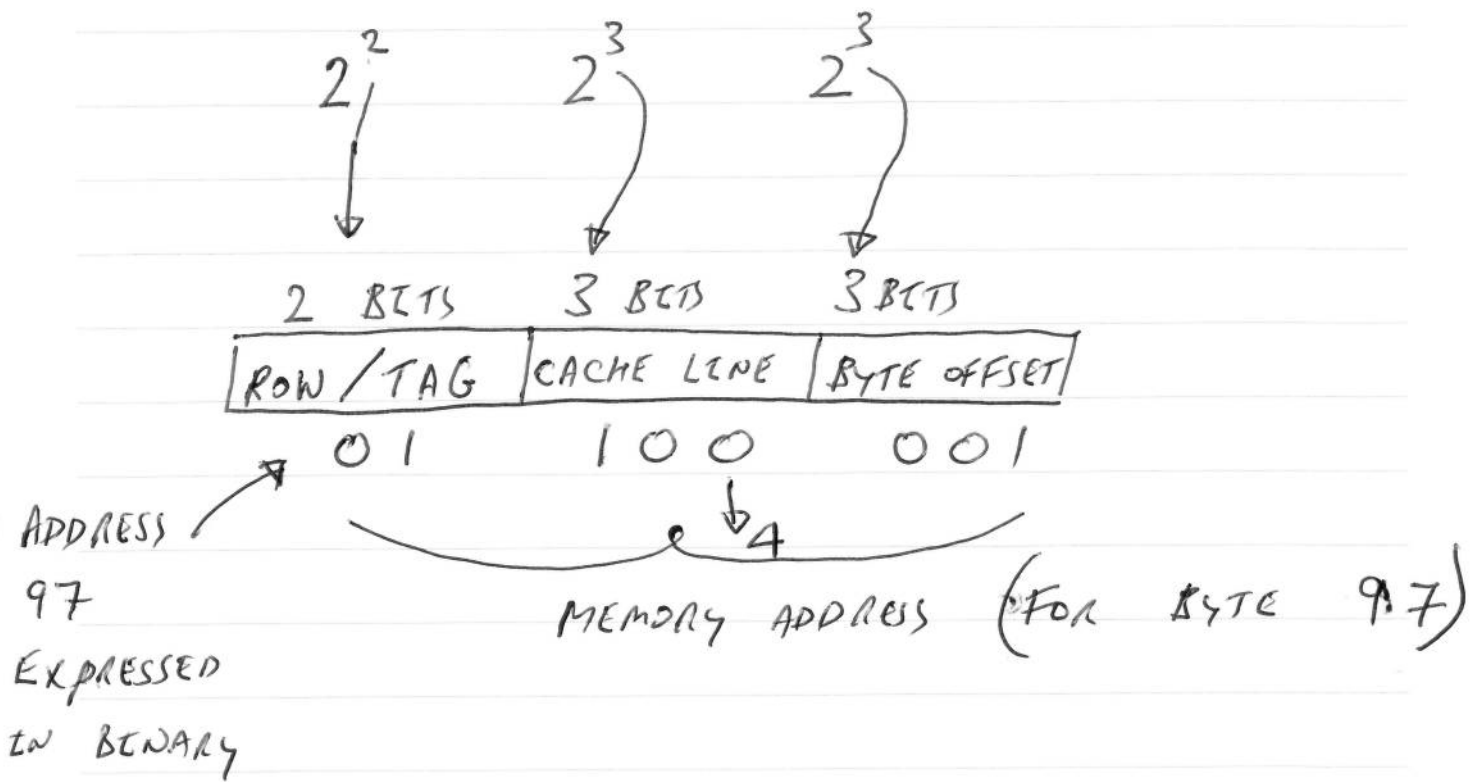 2² 2³ 2³
2 BITS 3 BITS 3 BITS
ROW / TAG CACHE LINE BYTE OFFSET
01 100 001
4
ADDRESS
97
EXPRESSED
IN BINARY
MEMORY ADDRESS (FOR BYTE 97)